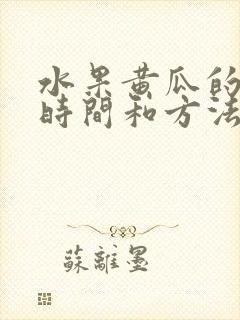 水果黃瓜的
時間和方法
蘇離墨